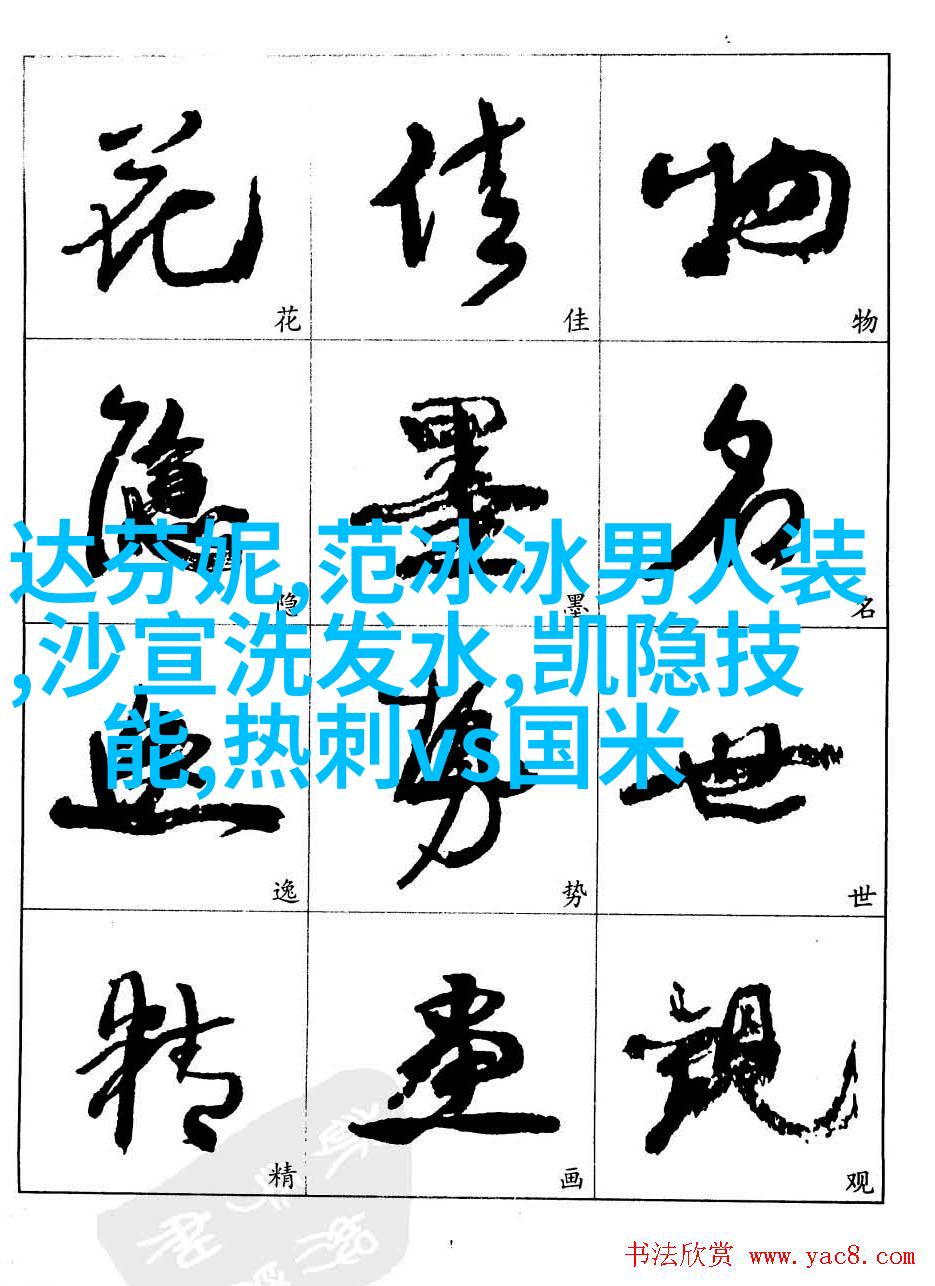 花 佳 物
花 佳 物
隐 墨 名
隐 墨 名
达芬妮,范冰冰男人装
,沙宣洗发水,凯隐技
能,热刺vs国米
逸 势 世
逸 势 世
精 画 观
精 画 观
书法欣赏 www.yac8.com